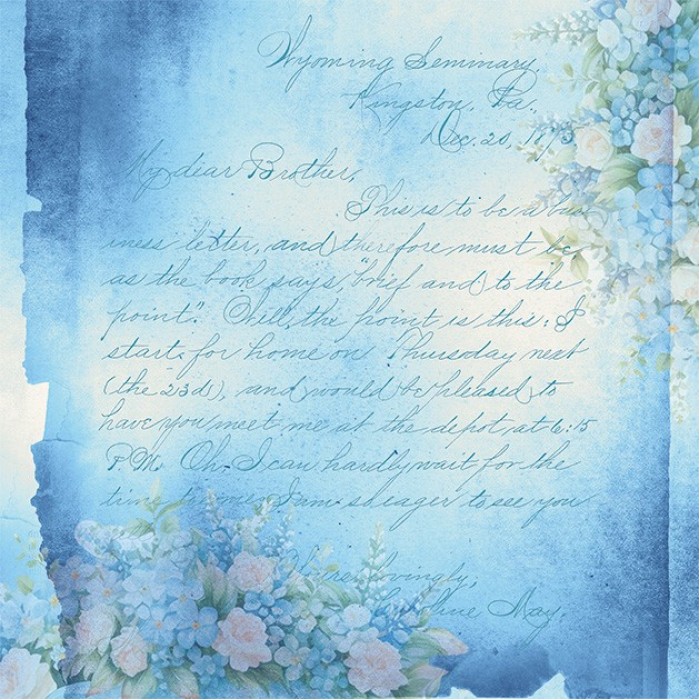 Wyoming Seminary.
Kingston, Pa.
Dec. 20, 1875
My dear Brother,
This is to be a bus
iness letter, and therefore must be
as the book says, "brief and to the
point". Well, the point is this: I
start for home on Thursday next
(the 23d), and would be pleased to
have you meet me at the depot, at 6:15
P.M. Oh, I can hardly wait for the
time to come I am so eager to see you
Yours lovingly,
May.